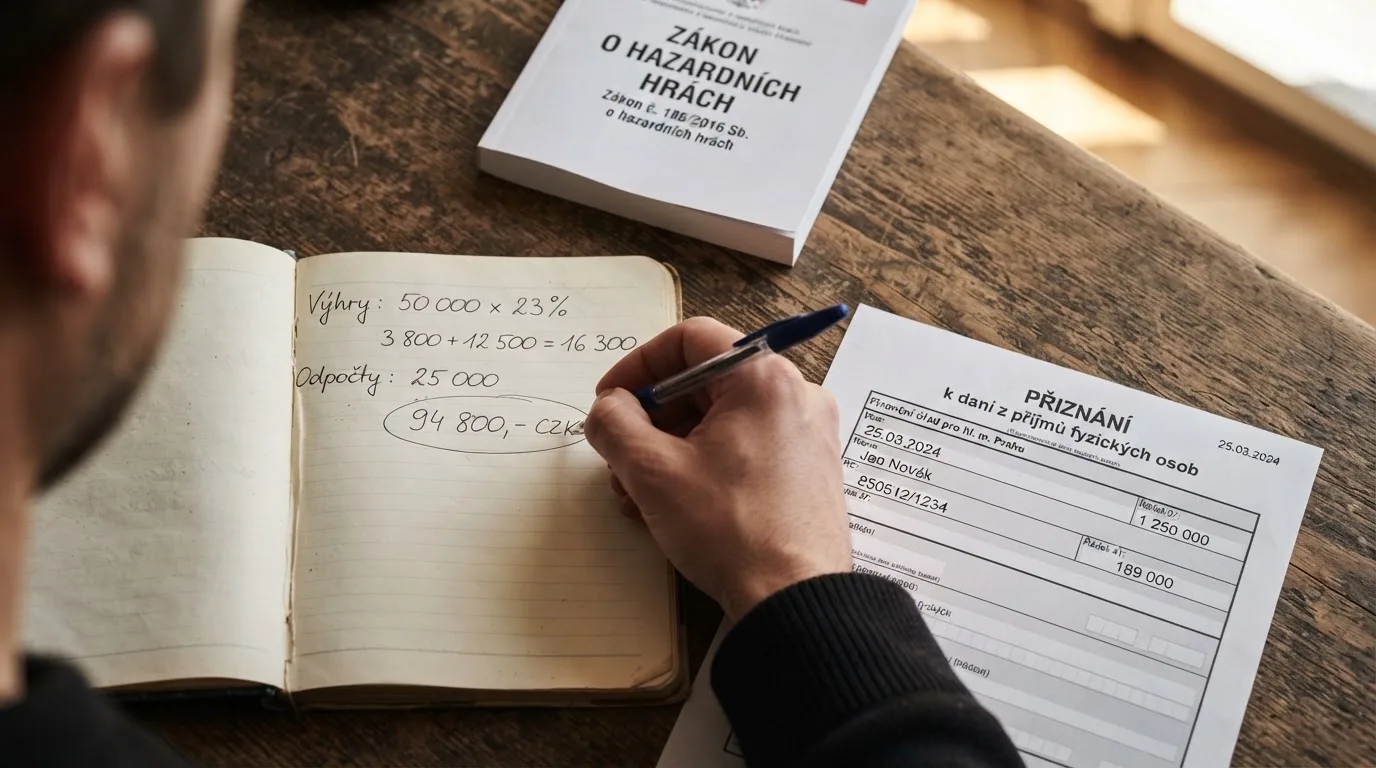 ZÁKON
O HAZARDNÍCH
HRÁCH
Zákon č. 186/2016 Sb.
o hazardních hrách
Výhry: 50 000 × 23%
3 800 + 12 500 = 16 300
Odpočty: 25 000
94 800,- CZK
PŘIZNÁNÍ
k dani z příjmů fyzických osob
25.03.2024
Finanční úřad pro hl. m. Prahu
25.03.2024
Jan Novák
850512/1234
1 250 000
189 000